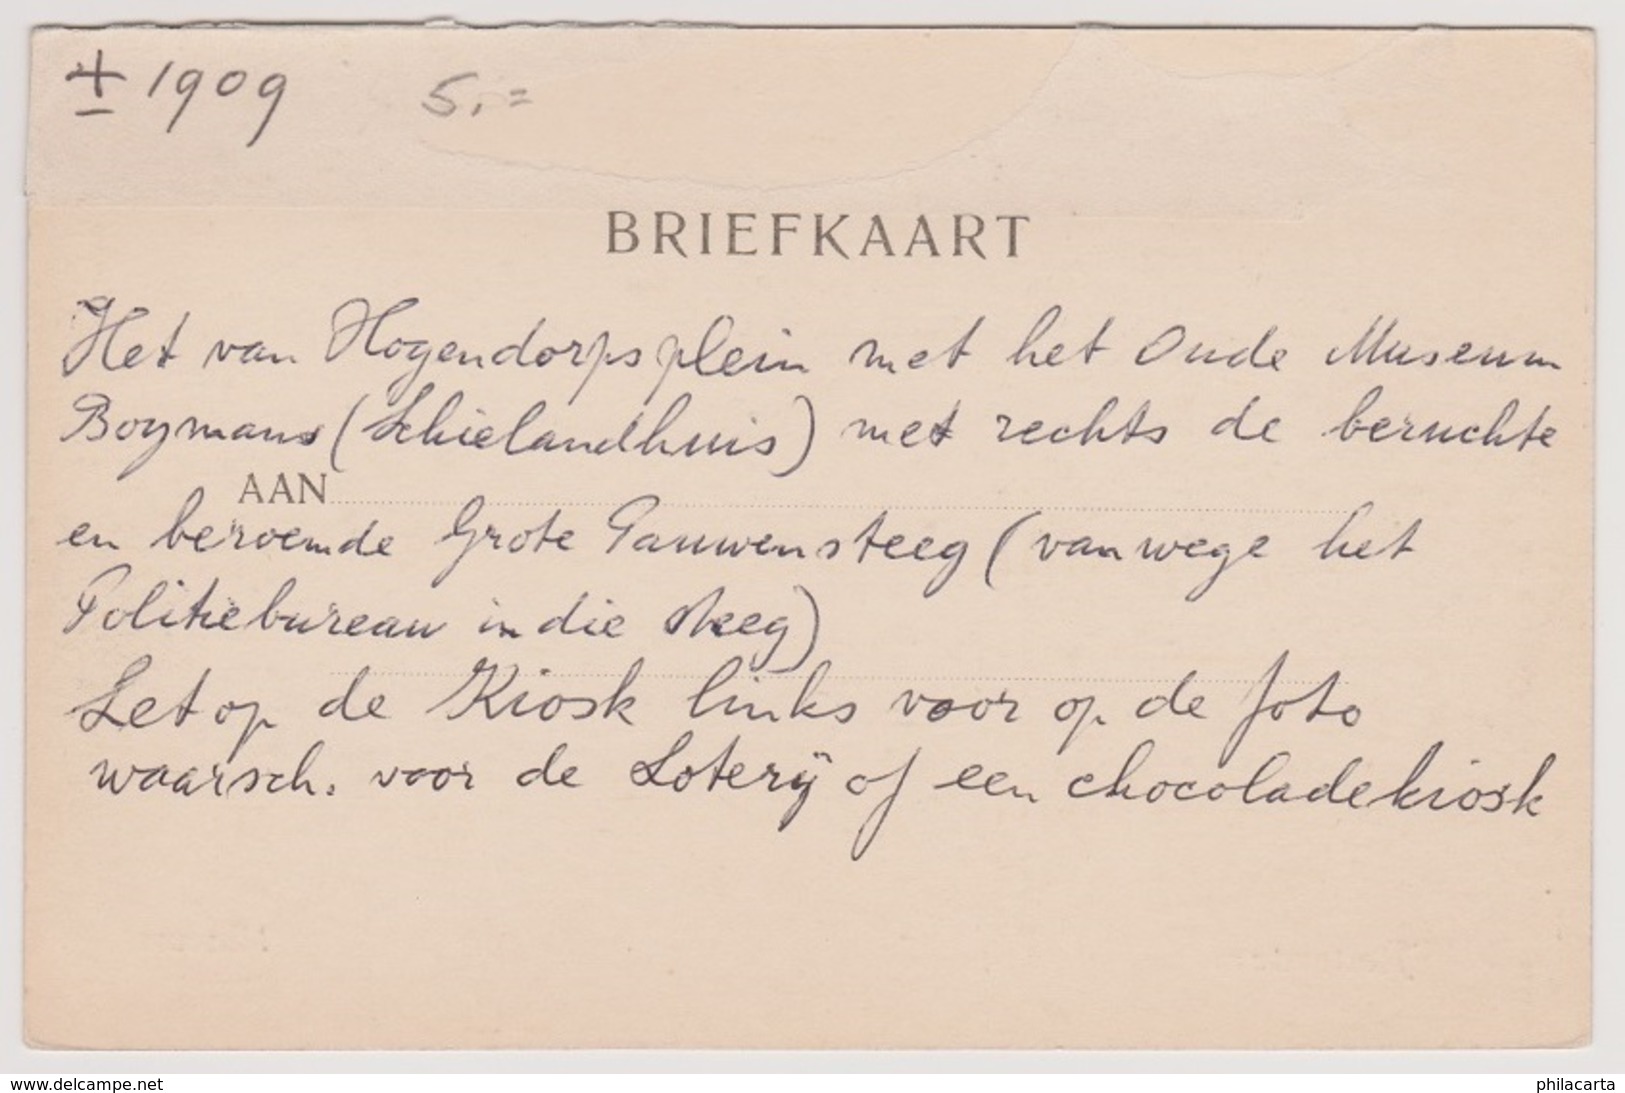 ± 1909 5,=
BRIEFKAART
Het van Hogendorpsplein met het Oude Museum
Boymans (Schielandhuis) met rechts de beruchte
AAN
en beroemde Grote Pauwensteeg (vanwege het
Politiebureau in die steeg)
Let op de Kiosk links voor op de foto
waarsch. voor de Loterÿ of een chocoladekiosk
www.delcampe.net philacarta